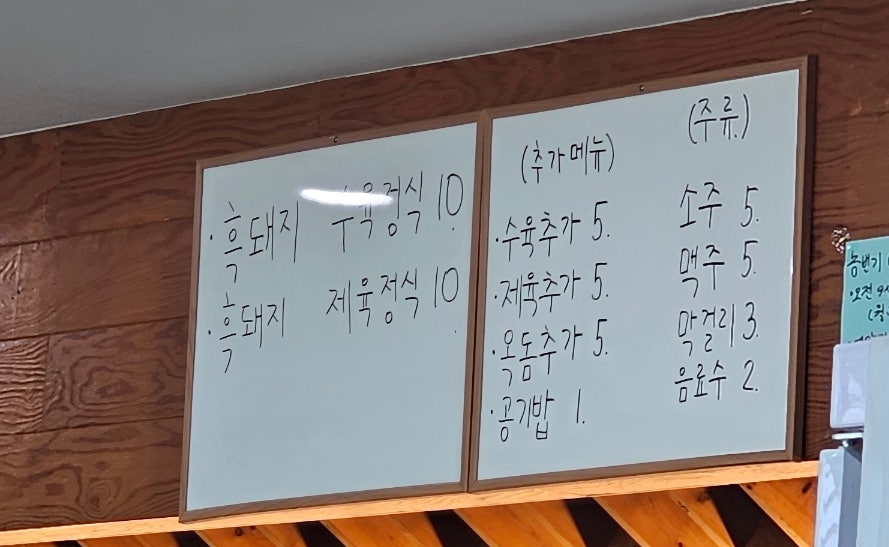 · 흑돼지 수육정식 10.
· 흑돼지 제육정식 10.
(추가메뉴)
· 수육추가 5.
· 제육추가 5.
· 옥돔추가 5.
· 공기밥 1.
(주류)
소주 5.
맥주 5.
막걸리 3.
음료수 2.
농번기
· 오전 9시